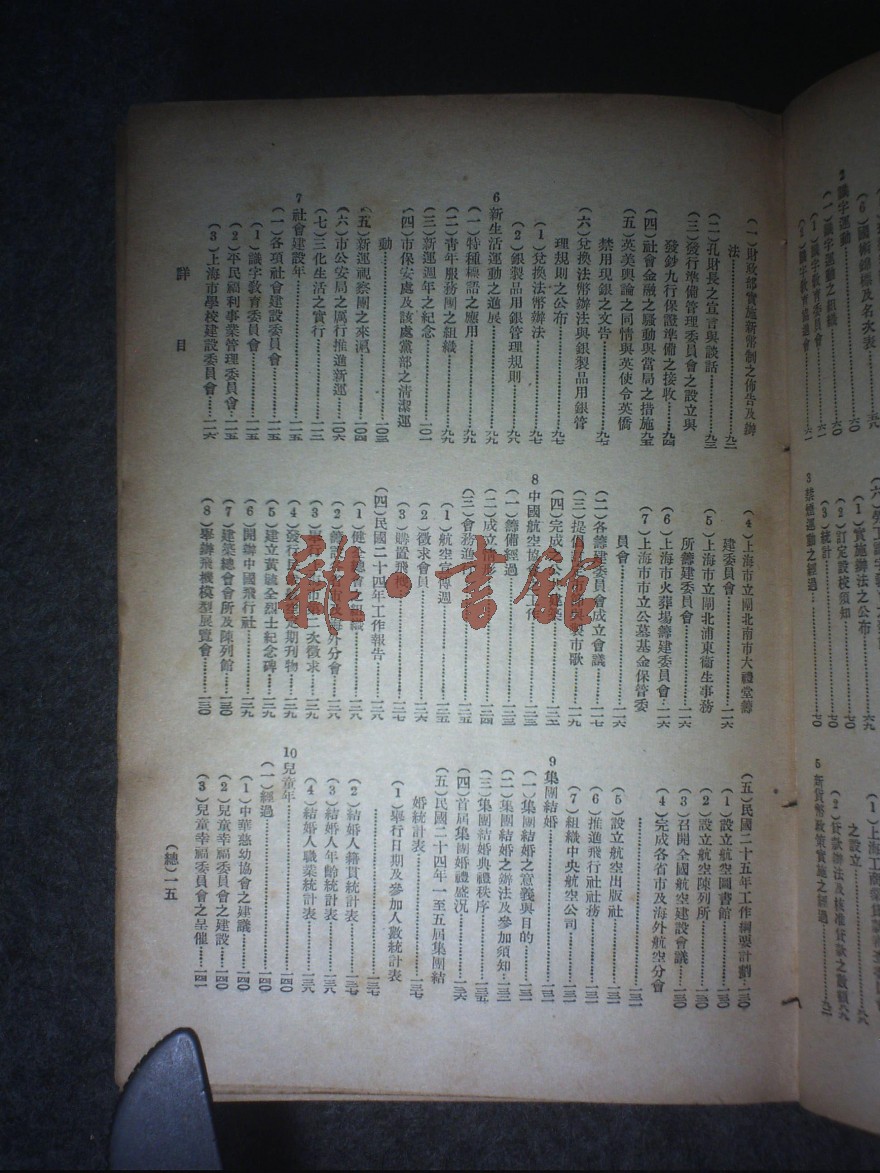 (一)財政部實施新幣制之佈告及辦
法……九二
(二)孔財長之宣言與談話……九三
(三)發行準備管理委員會之設立與
發鈔九行保證準備之接收……九四
(四)社會金融之騷動與當局之措施九五
(五)英美輿論之同情與英使令英僑
禁用現銀之文告……九七
(六)兌換法幣辦法與銀製品用銀管
理規則之公布……九七
(1)兌換法幣辦法……九七
(2)銀製品用銀管理規則……九八
6 新生活運動之進展……九九
(一)特種標語之應用……九九
(二)青年服務團之組織……九九
(三)新運週年之紀念……一〇一
(四)市保安處及該處黨部之清潔運
動……一〇三
(五)新運視察團之來滬……一〇四
(六)市公安局之厲行推進新運……一〇六
(七)三化生活之實行……一一二
7 社會建設年……一一五
(一)各項社會建設委員會……一一五
(1)識字教育委員會……一一五
(2)平民福利事業管理委員會……一一五
(3)上海市學校建設委員會……一一六
詳目
(4)上海市立閘北南市大禮堂籌
建委員會……一一六
(5)上海市市立閘北浦東衞生事務
所籌建委員會……一一六
(6)上海市火葬場籌建委員會……一一六
(7)上海市市立公墓基金保管委
員會……一一六
(二)各籌建委員會成立會議……一一七
(三)提倡
市歌……一一九
(四)完成
8 中國航空協會
工作……一二三
(一)籌備經過……一二三
(二)成立情形……一二四
(三)會務進
……一二五
(1)航空宣傳週……一二五
(2)徵求會員……一二六
(3)購置飛機……一二七
(四)民國二十四年工作報告……一二八
(1)健全總會之組織……一二八
(2)籌設
市海外分會……一二八
(3)
市第二次徵求……一二九
(4)發行
定期刊物……一二九
(5)建立黃毓全烈士紀念碑……一二九
(6)開辦中國飛行社……一二九
(7)建築總會會所及陳列館……一三〇
(8)舉辦飛機模型展覽會……一三〇
(五)民國二十五年工作綱要計劃……一三〇
(1)設立航空圖書館……一三〇
(2)設立航空陳列所……一三〇
(3)召開全國航空建設會議……一三〇
(4)完成各省市及海外航空分會
……一三一
(5)設立航空出版社……一三一
(6)推進飛行社社務……一三一
(7)組織中央航空公司……一三一
9 集團結婚……一三二
(一)集團結婚之意義與目的……一三二
(二)集團結婚之辦法及參加須知……一三二
(三)集團結婚典禮秩序……一三五
(四)首屆集團婚禮盛況……一三六
(五)民國二十四年一至五屆集團結
婚統計表……一三七
(1)舉行日期及參加人數統計表
……一三七
(2)結婚人籍貫統計表……一三七
(3)結婚人年齡統計表……一三八
(4)結婚人職業統計表……一三八
10 兒童年……一四〇
(一)經過……一四〇
(1)中華慈幼協會之建議……一四〇
(2)兒童幸福委員會之建設……一四〇
(3)兒童幸福委員會之呈催……一四一
(總)一五
(6)國術錦標及名次表
2 識字運動……六〇
(一)識字運動之組織……六〇
(1)識字教育委員會……六一
(2)識字教育協進會……六一
(1)實施辦法之公布……六九
(2)訂定設校須知……七〇
(3)統計……七〇
3 禁煙運動之經過……七〇
之設立……八八
(2)貸款辦法及核准貸款之數額八九
5 新貨幣政策實施之經過……九二
雜·書館